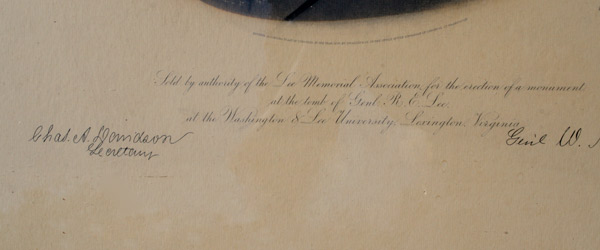 Sold by authority of the Lee Memorial Association, for the erection of a monument
at the tomb of Genl. R. E. Lee,
at the Washington & Lee University, Lexington, Virginia
Chas. A. Davidson
Secretary
Genl W.